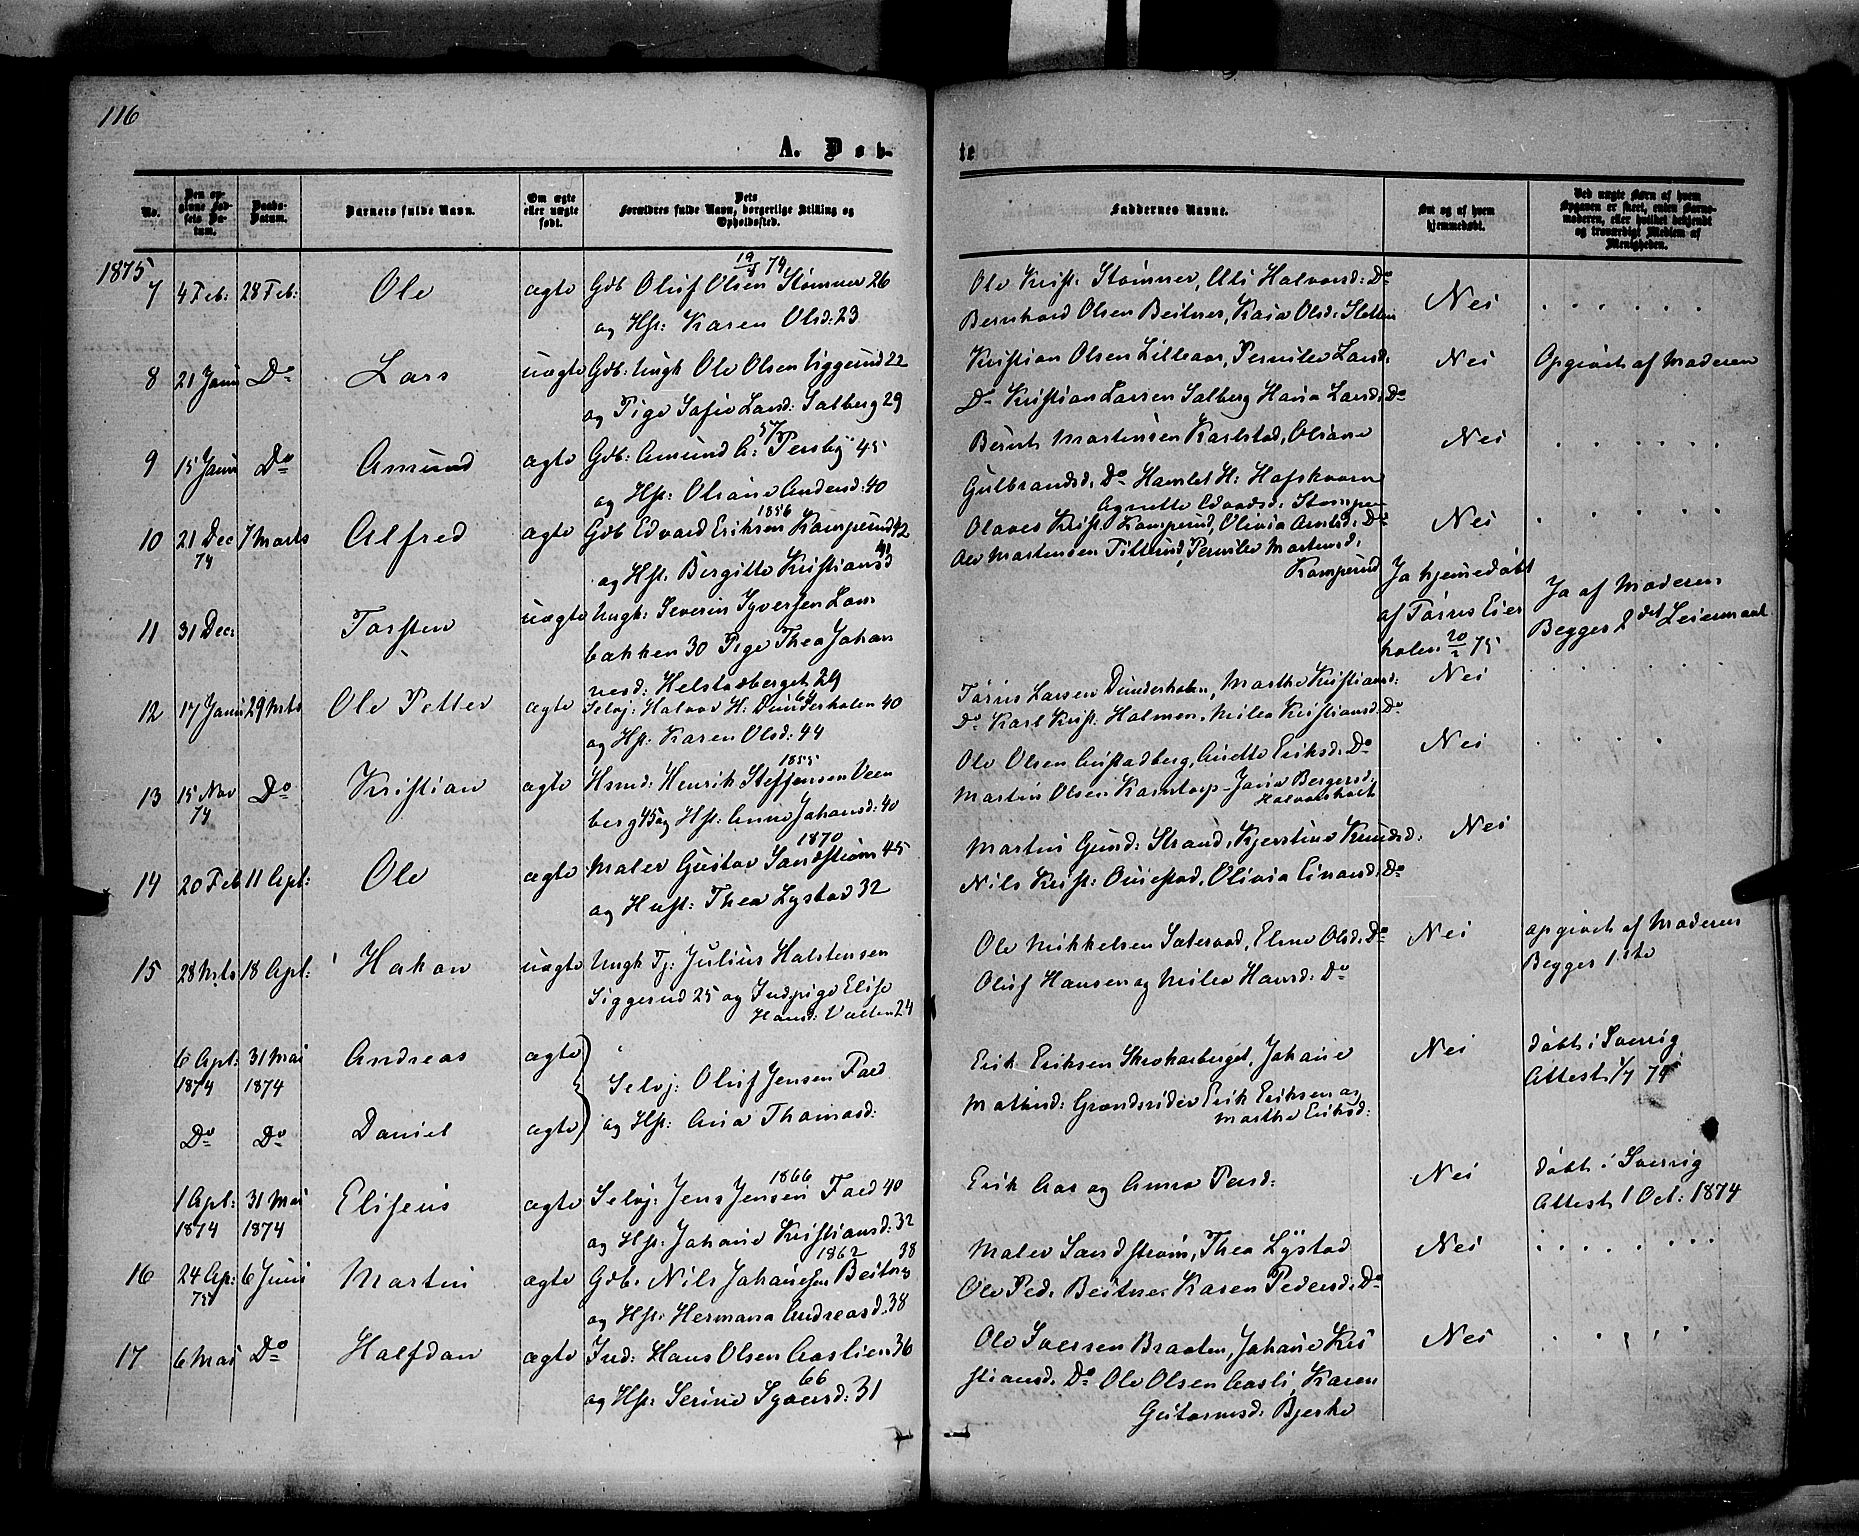 116
A. Døb-
te
No.
Den opgivne Fødsels Datum.
Daabs-Datum.
Barnets fulde Navn.
Om ægte eller uægte født.
Dets Forældres fulde Navn, borgerlige Stilling og Opholdssted.
Faddernes Navne.
Om og af hvem hjemmedøbt.
Ved uægte Børn af hvem Opgaven er skeet, enten Barnemoderen, eller hvilket bekjendt og troværdigt Medlem af Menigheden.
1875
7 4 Feb: 28 Feb: Ole ægte Gdb Oluf Olsen Stømner 26
og Hst: Karen Olsd: 23
Ole Krist: Stømner, Halvorsd: Do
Bernhard Olsen Beitner, Kaia Olsd: Sletten
Nei
8 21 Janu Do Lars uægte Gdb: Ungk Ole Olsen Siggerud 22
og Pige Sofie Larsd: Salberg 29
Kristian Olsen Lilleaas, Pernille Larsd:
Do Kristian Larsen Salberg Hana Larsd: Do
Nei Opgivet af Moderen
9 15 Janu Do Amund ægte Gdb: Amund A: Persby 45
57
og Hst: Oliane Andersd: 40
Bernt Martinsen Karlstad, Oliane
Gulbrandsd: Do Hamlet H: Hofskvern
Agnette Edvardsd:
Nei
10 21 Dec 74 7 Marts Alfred ægte Gdb Edvard Eriksen Kamperud 42
1856
og Hst: Birgitte Kristiansd 41
Olaves Krist: Kamperud, Olivia Arntsd: Do
Ole Martinsen Tillerud, Pernille Martinsd:
Kamperud
Nei
11 31 Dec: Torsten uægte Ungk: Severin Syversen Lom
bakken 30 Pige Thea Johan
nesd: Helstadberget 29
Ja hjemmedøbt
af Tørris Eier
holen 20/2 75
Ja af Moderen
Begges 2det Leiermaal
12 17 Janu 29 Mts Ole Petter ægte Selvj: Halvor H: Dunderholen 40
64
og Hst: Karen Olsd: 44
Tørris Larsen Dunderholen, Marthe Kristiansd:
Do Karl Krist: Holmen, Milea Kristiansd: Do
Nei
13 15 Nov 74 Do Kristian ægte Hsmd: Henrik Steffensen Veen
1855
berg 45 og Hst: Anne Johansd: 40
Ole Olsen Austadberg, Anette Eriksd: Do
Martin Olsen Karterp - Jana Bergersd:
Halvorsholt
Nei
14 20 Feb 11 Apl: Ole ægte Maler Gustav Sandstrøm 45
1870
og Hust: Thea Lystad 32
Martin Gund: Strand, Kjerstine Knudsd:
Nils Krist: Ouiestad, Olivia Einarsd: Do
Nei
15 28 Mts 18 Apl: Hakon uægte Ungk Tj: Julius Halstensen
Siggerud 25 og Indpige Elise
Hansd: Vallen 24
Ole Mikkelsen Sæteraad, Elene Olsd: Do
Oluf Hansen og Milea Hansd: Do
Nei opgivet af Moderen
Begges 1ste
6 Apl: 1874 31 Mai 1874 Andreas ægte
Selvj: Oluf Jensen Faed
og Hst: Ana Thomasd:
Do Do Daniel ægte
Erik Eriksen Skrokarberget, Johane
Matiasd: Grændsrider Erik Eriksen og
Marthe Eriksd:
Nei døbt i Sverrig
Attest 1/7 74
1 Apl: 1874 31 Mai 1874 Eliseus ægte Selvj: Jens Jensen Faed 40
1866
og Hst: Johane Kristiansd: 32
Erik Aas og Anna Persd:
Nei døbt i Sverrig
Attest 1 Oct: 1874
16 24 Ap: 75 6 Juni Martin ægte Gdb: Nils Johannesen Beitnes 38
1862
og Hst: Hermana Andreasd: 38
Maler Sandstrøm, Thea Lystad
Ole Ped: Beitnes Karen Pedersd: Do
Nei
17 6 Mai Do Halfdan ægte Ind: Hans Olsen Aaslien 36
66
og Hst: Serine Syversd: 31
Ole Iversen Braaten, Johane Kri
stiansd: Do Ole Olsen Aasli, Karen
Guttormsd: Bjerke
Nei